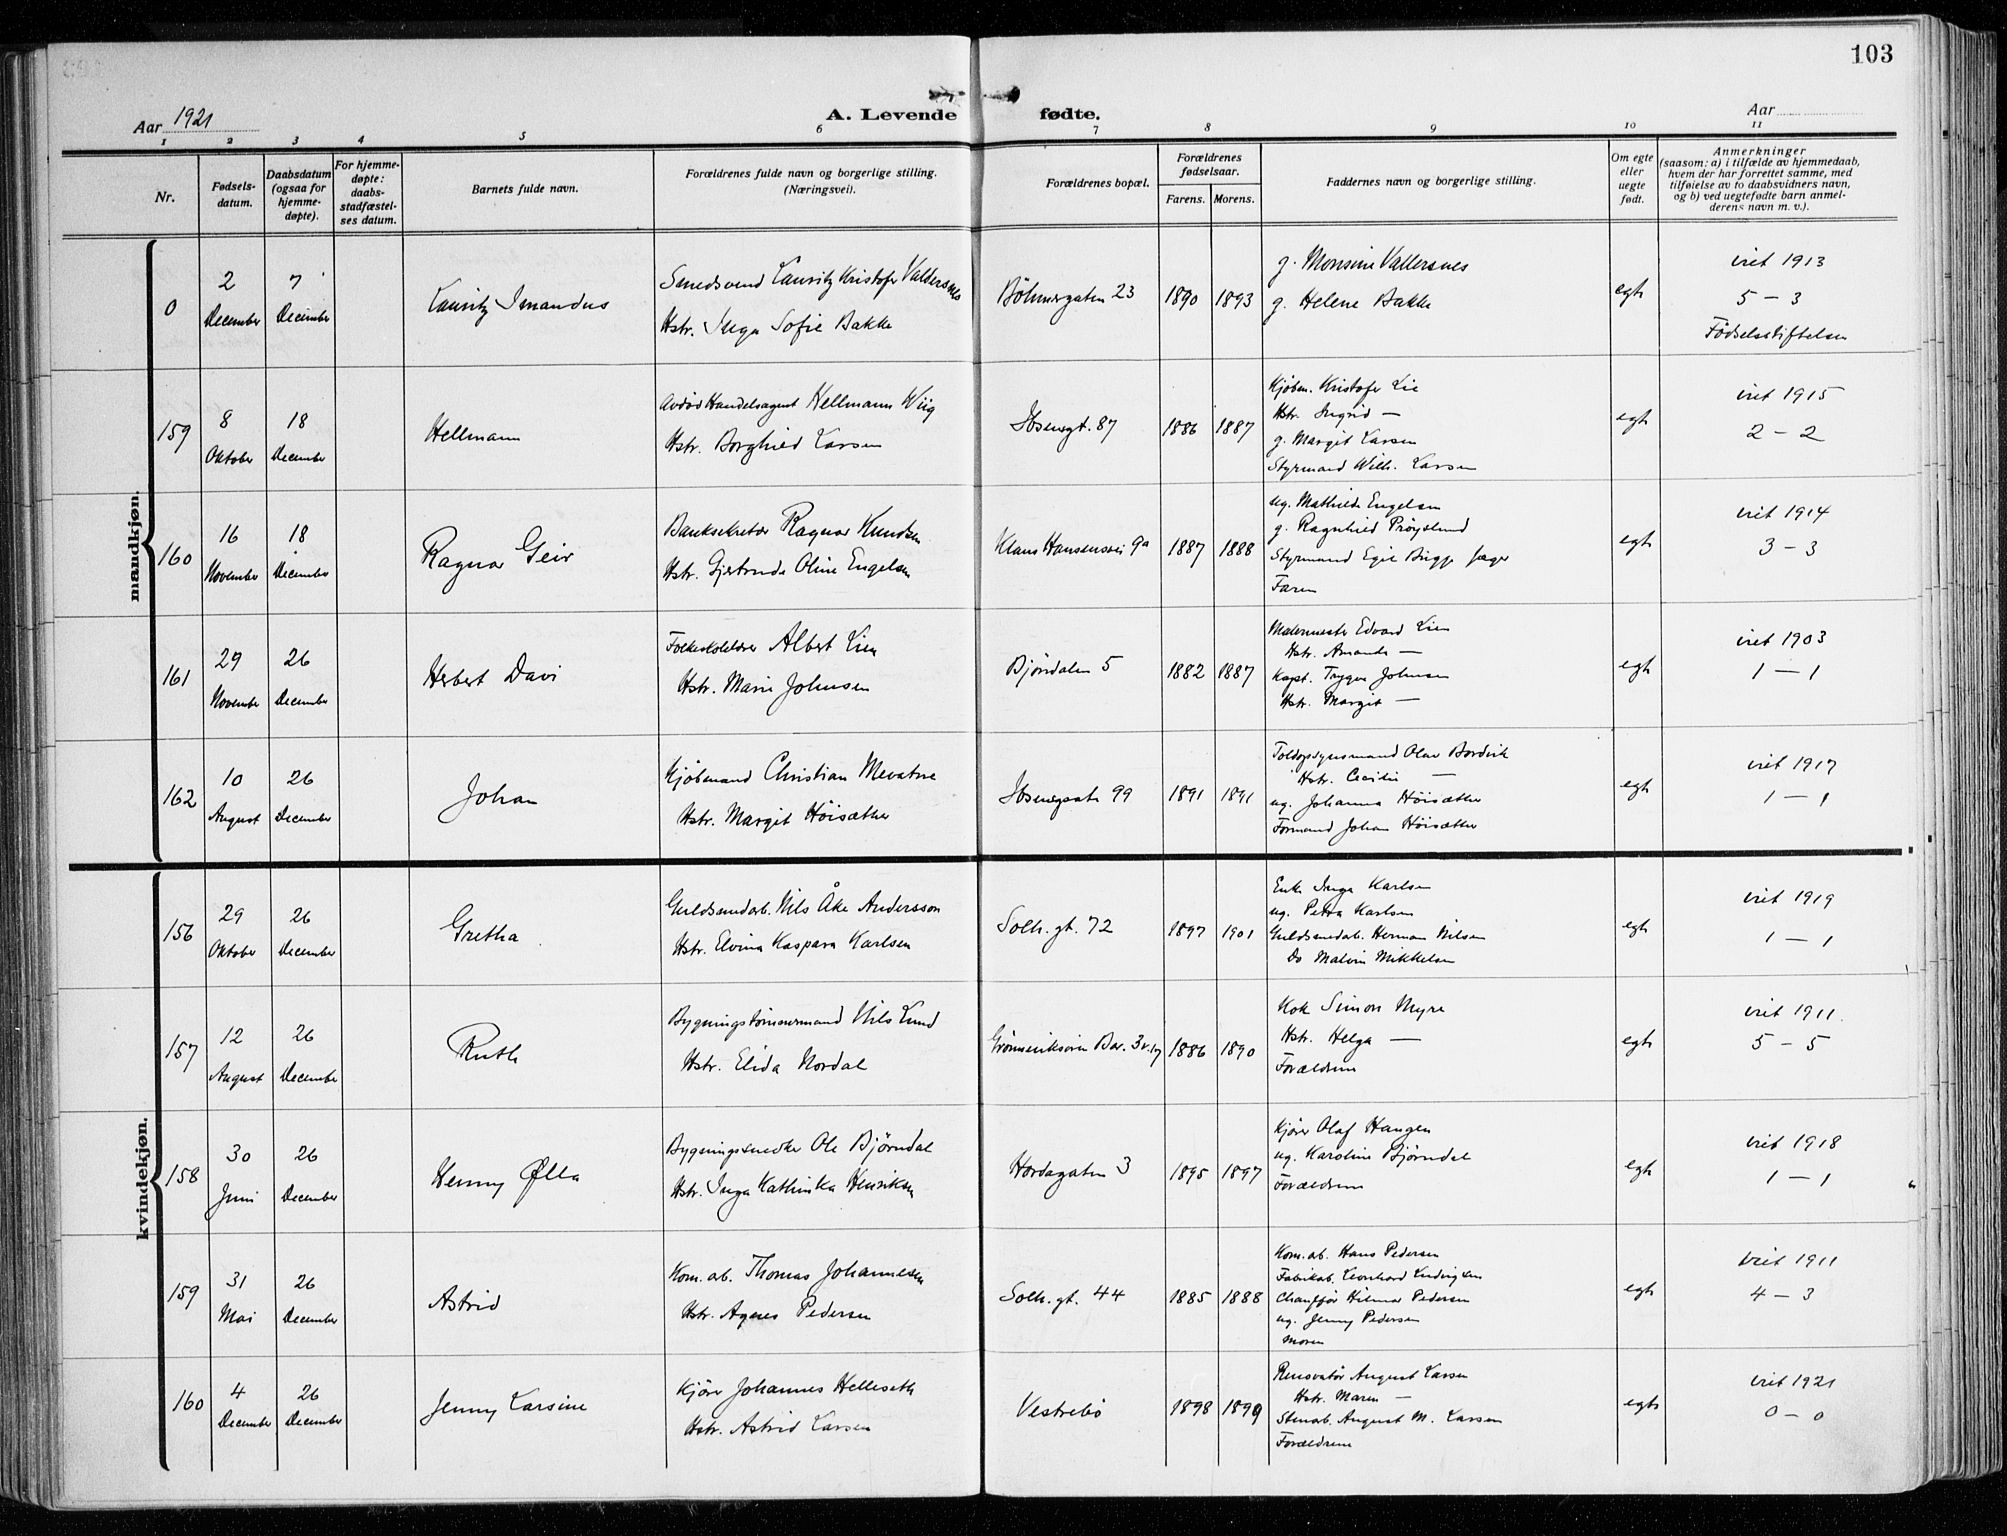 103
Aar 1921
A. Levende fødte.
Aar
1 2 3 4 5 6 7 8 9 10 11
Nr.
Fødsels-
datum.
Daabsdatum
(ogsaa for
hjemme-
døpte).
For hjemme-
døpte:
daabs-
stadfæstel-
ses datum.
Barnets fulde navn.
Forældrenes fulde navn og borgerlige stilling.
(Næringsvei).
Forældrenes bopæl.
Forældrenes
fødselsaar.
Farens. Morens.
Faddernes navn og borgerlige stilling.
Om egte
eller
uegte
født.
Anmerkninger
(saasom: a) i tilfælde av hjemmedaab,
hvem der har forrettet samme, med
tilføielse av to daabsvidners navn,
og b) ved uegtefødte barn anmel-
derens navn m. v.).
mandkjøn.
0
2 December
7 December
Lauritz Imandus
Smedsvend Lauritz Kristofer Valdersnes
Hstr. Inga Sofie Bakke
Böhmergaten 23
1890 1893
g. Monsine Vallersnes
g. Helene Bakke
egte
viet 1913
5 – 3
Fødselsstiftelsen
159
8 Oktober
18 December
Hellmann
Avdød Handelsagent Hellmann Wiig
Hstr. Borghild Larsen
Ibsensgt. 87
1886 1887
Kjøbm. Kristofer Lie
Hstr. Ingrid —
g. Margit Larsen
Styrmand Wilh. Larsen
egte
viet 1915
2 – 2
160
16 November
18 December
Ragnar Geir
Banksekretær Ragnar Knudsen
Hstr. Gjertrude Oline Engelsen
Klaus Hansensvei 9a
1887 1888
ug. Mathilde Engelsen
g. Ragnhild Prøyslund
Styrmand Egil Brigg Jæger
Faren
egte
viet 1914
3 – 3
161
29 November
26 December
Herbert Davi
Folkeskolelærer Albert Lien
Hstr. Marie Johnsen
Bjørndalen 5
1882 1887
Malermester Edvard Lien
Hstr. Amanda —
Kapt. Trygve Johnsen
Hstr. Margit —
egte
viet 1903
1 – 1
162
10 August
26 December
Johan
Kjøbmand Christian Mevatne
Hstr. Margit Höisæther
Ibsensgate 99
1891 1891
Toldopsynsmand Olav Bordvik
Hstr. Cecilie —
ug. Johanna Höisæther
Formand Johan Höisæther
egte
viet 1917
1 – 1
kvindekjøn.
156
29 Oktober
26 December
Gretha
Guldsmedarb. Nils Åke Andersson
Hstr. Elvina Kaspara Karlsen
Solh. gt. 72
1897 1901
Enke Inga Karlsen
ug. Petra Karlsen
Guldsmedab. Herman Nilsen
Do Malvin Mikkelsen
egte
viet 1919
1 – 1
157
12 August
26 December
Ruth
Bygningstømmermand Nils Lund
Hstr. Elida Nordal
Bar. 3 v. 17
1886 1890
Kok Simon Myre
Hstr. Helga —
Forældrene
egte
viet 1911
5 – 5
158
30 Juni
26 December
Henny Ølla
Bygningssnedker Ole Bjørndal
Hstr. Inga Kathinka Henriksen
Hordagaten 3
1895 1897
Kjører Olaf Haugen
ug. Karoline Bjørndal
Forældrene
egte
viet 1918
1 – 1
159
31 Mai
26 December
Astrid
Kom. arb. Thomas Johannesen
Hstr. Agnes Pedersen
Solh. gt. 44
1885 1888
Kom. arb. Hans Pedersen
Fabrikab. Leonhard Ludvigsen
Chauffør Hilmar Pedersen
ug. Jenny Pedersen
Moren
egte
viet 1911
4 – 3
160
4 December
26 December
Jenny Larsine
Kjører Johannes Helleseth
Hstr. Astrid Larsen
Vestrebö
1898 1899
Renovatör August Larsen
Hstr. Maren —
Stenarb. August M. Larsen
Forældrene
egte
viet 1921
0 – 0